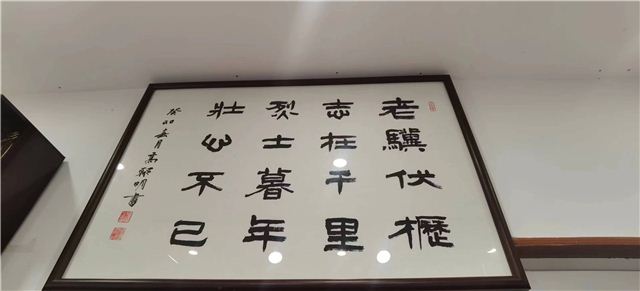 老驥伏櫪
志在千里
烈士暮年
壯心不已
癸卯春月高聰明書